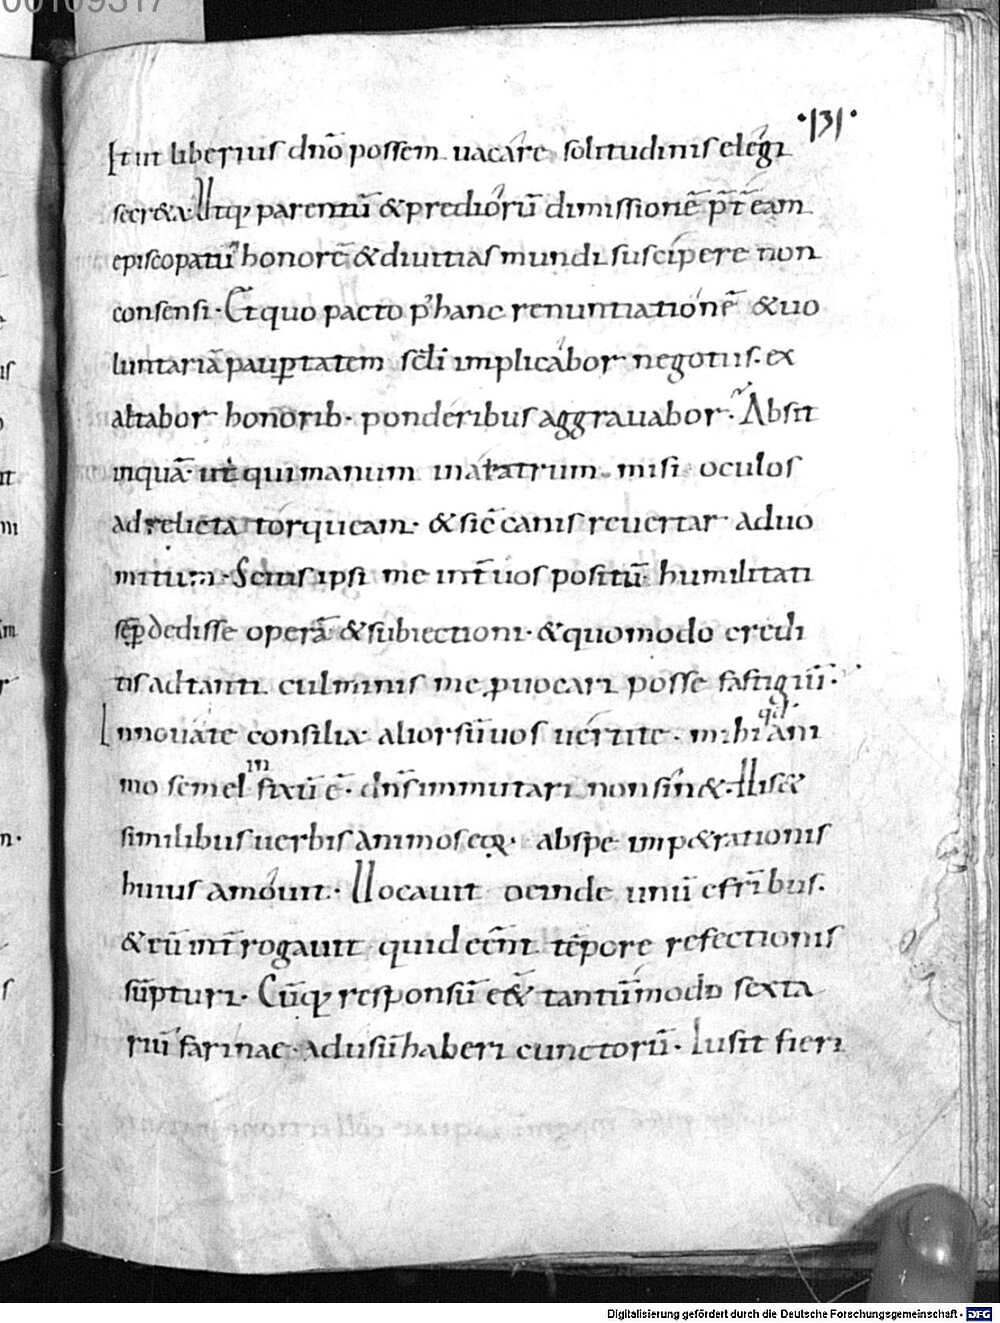 00109317
·131·
Et ut liberius dn̄o possem uacare solitudinis elegi
secr&a. Utq; parentū & predioru̅ dimissionē p̄t̄ eam
episcopatu̅ honorē & diuitias mundi suscipere non
consensi· Et quo pacto p' hanc renuntiationē &uo
luntariā paup̱tatem scl̄i implicabor negotiis. ex
altabor honorib· ponderibus aggrauabor· Absit
inquā· ut qui manum in aratrum misi oculos
ad relicta torqueam· & sic̄ canis reuertar ad uo
mitum· Scitis ipsi me int̄ uos positū humilitati
sēp̱ dedisse operā & subiectioni· & quomodo credi
tis ad tanti culminis me ꝓuocari posse fastigiū·
Innouate consilia aliorsū uos uertite· mihi qd' ani
mo semel in fixū ē· dn̄s immutari non sin&· His &
similibus uerbis animos eoꝝ· ab spe imp&rationis
huius amouit· Uocauit deinde unū e fr̄ibus·
& cū int̄rogauit quid eēnt tēpore refectionis
sūpturi· Cūq; responsū ēē& tantūmodo sexta
riū farinae· ad usū haberi cunctorū· Iussit fieri
Digitalisierung gefördert durch die Deutsche Forschungsgemeinschaft - DFG